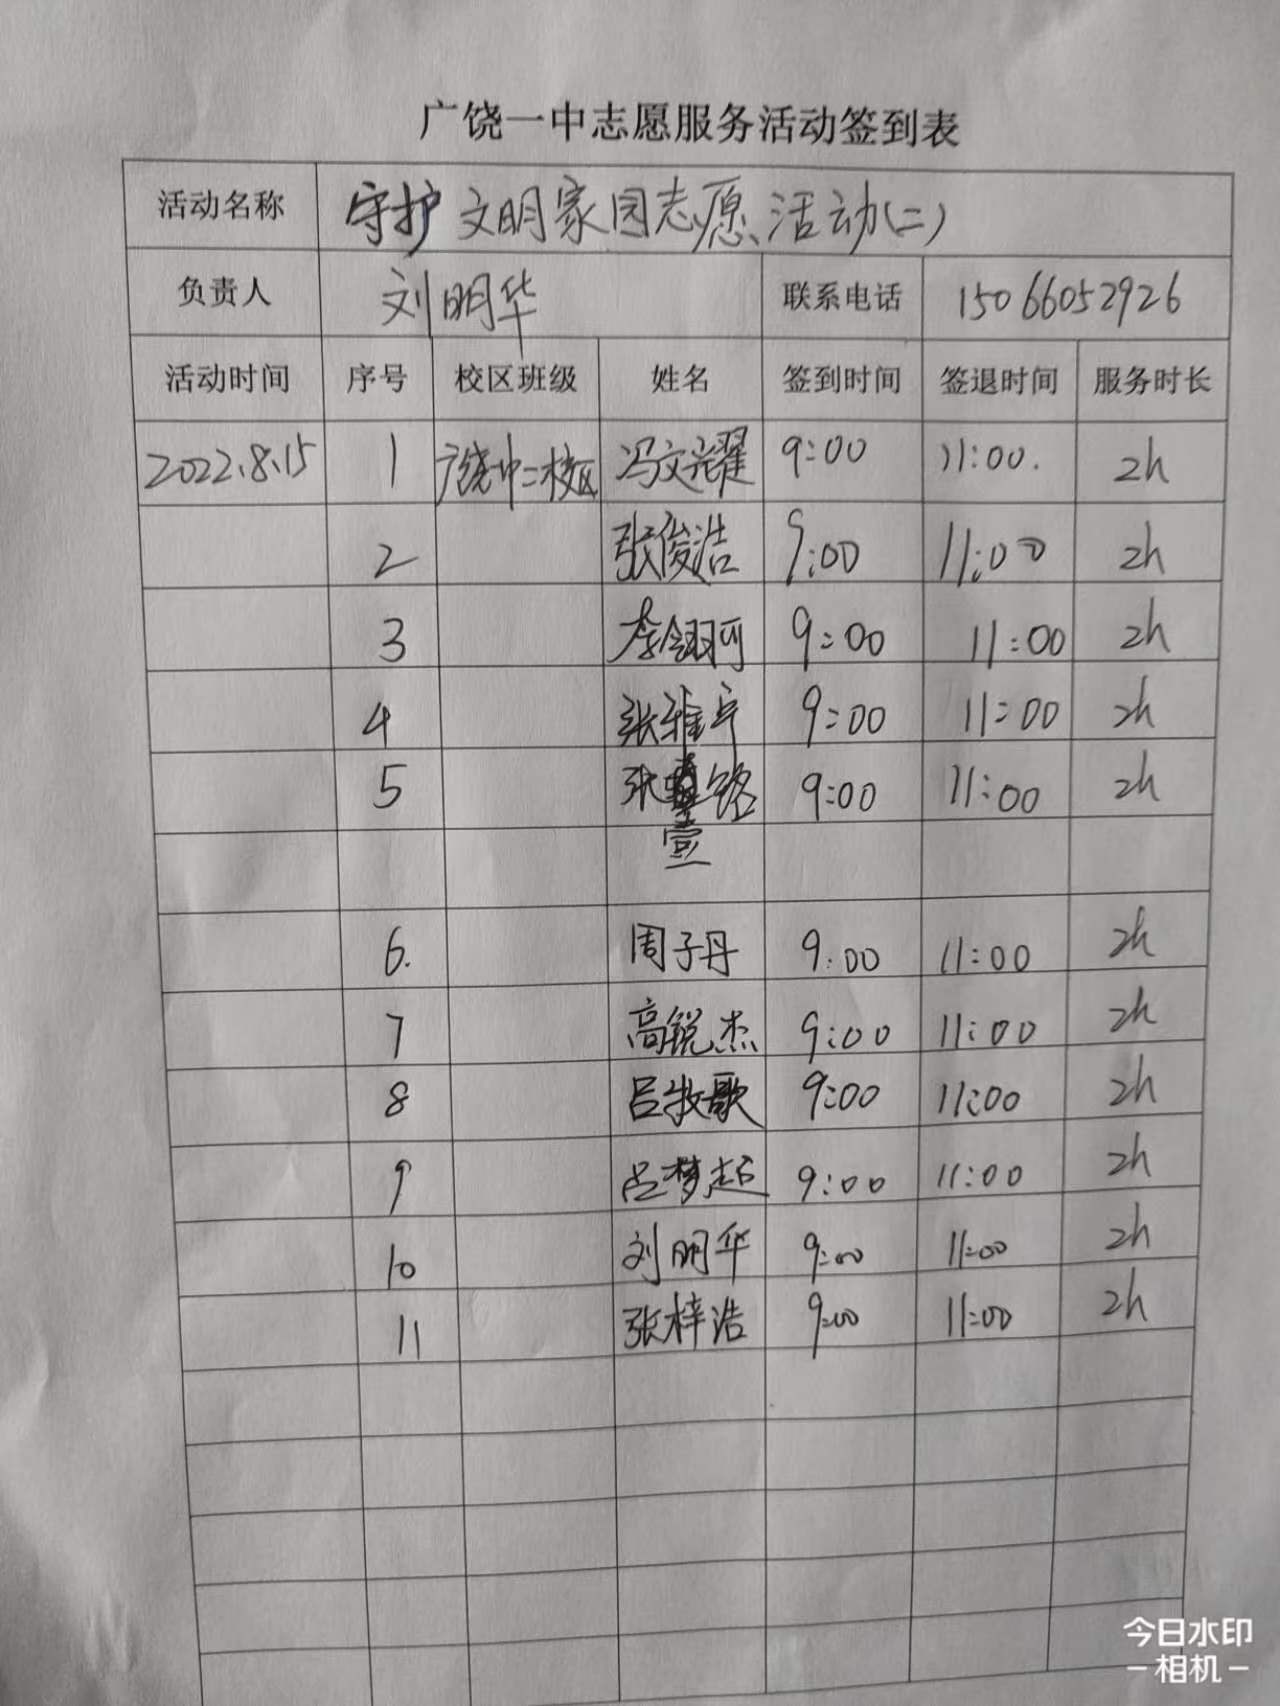 广饶一中志愿服务活动签到表
活动名称 守护文明家园志愿活动(二)
负责人 刘明华 联系电话 15066052926
活动时间 序号 校区班级 姓名 签到时间 签退时间 服务时长
2022.8.15 1 广饶一中二校区 冯文耀 9:00 11:00. 2h
2 张俊浩 9:00 11:00 2h
3 李翎可 9:00 11:00 2h
4 张雅宁 9:00 11:00 2h
5 张 铭 9:00 11:00 2h
壹
6. 周子丹 9:00 11:00 2h
7 高锐杰 9:00 11:00 2h
8 吕牧歌 9:00 11:00 2h
9 吕梦超 9:00 11:00 2h
10 刘明华 9:00 11:00 2h
11 张梓浩 9:00 11:00 2h
今日水印
-相机-